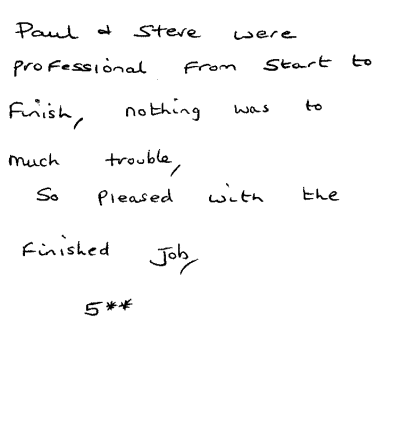 Paul & Steve were
professional from start to
Finish, nothing was to
much trouble,
So Pleased with the
Finished Job,
5**